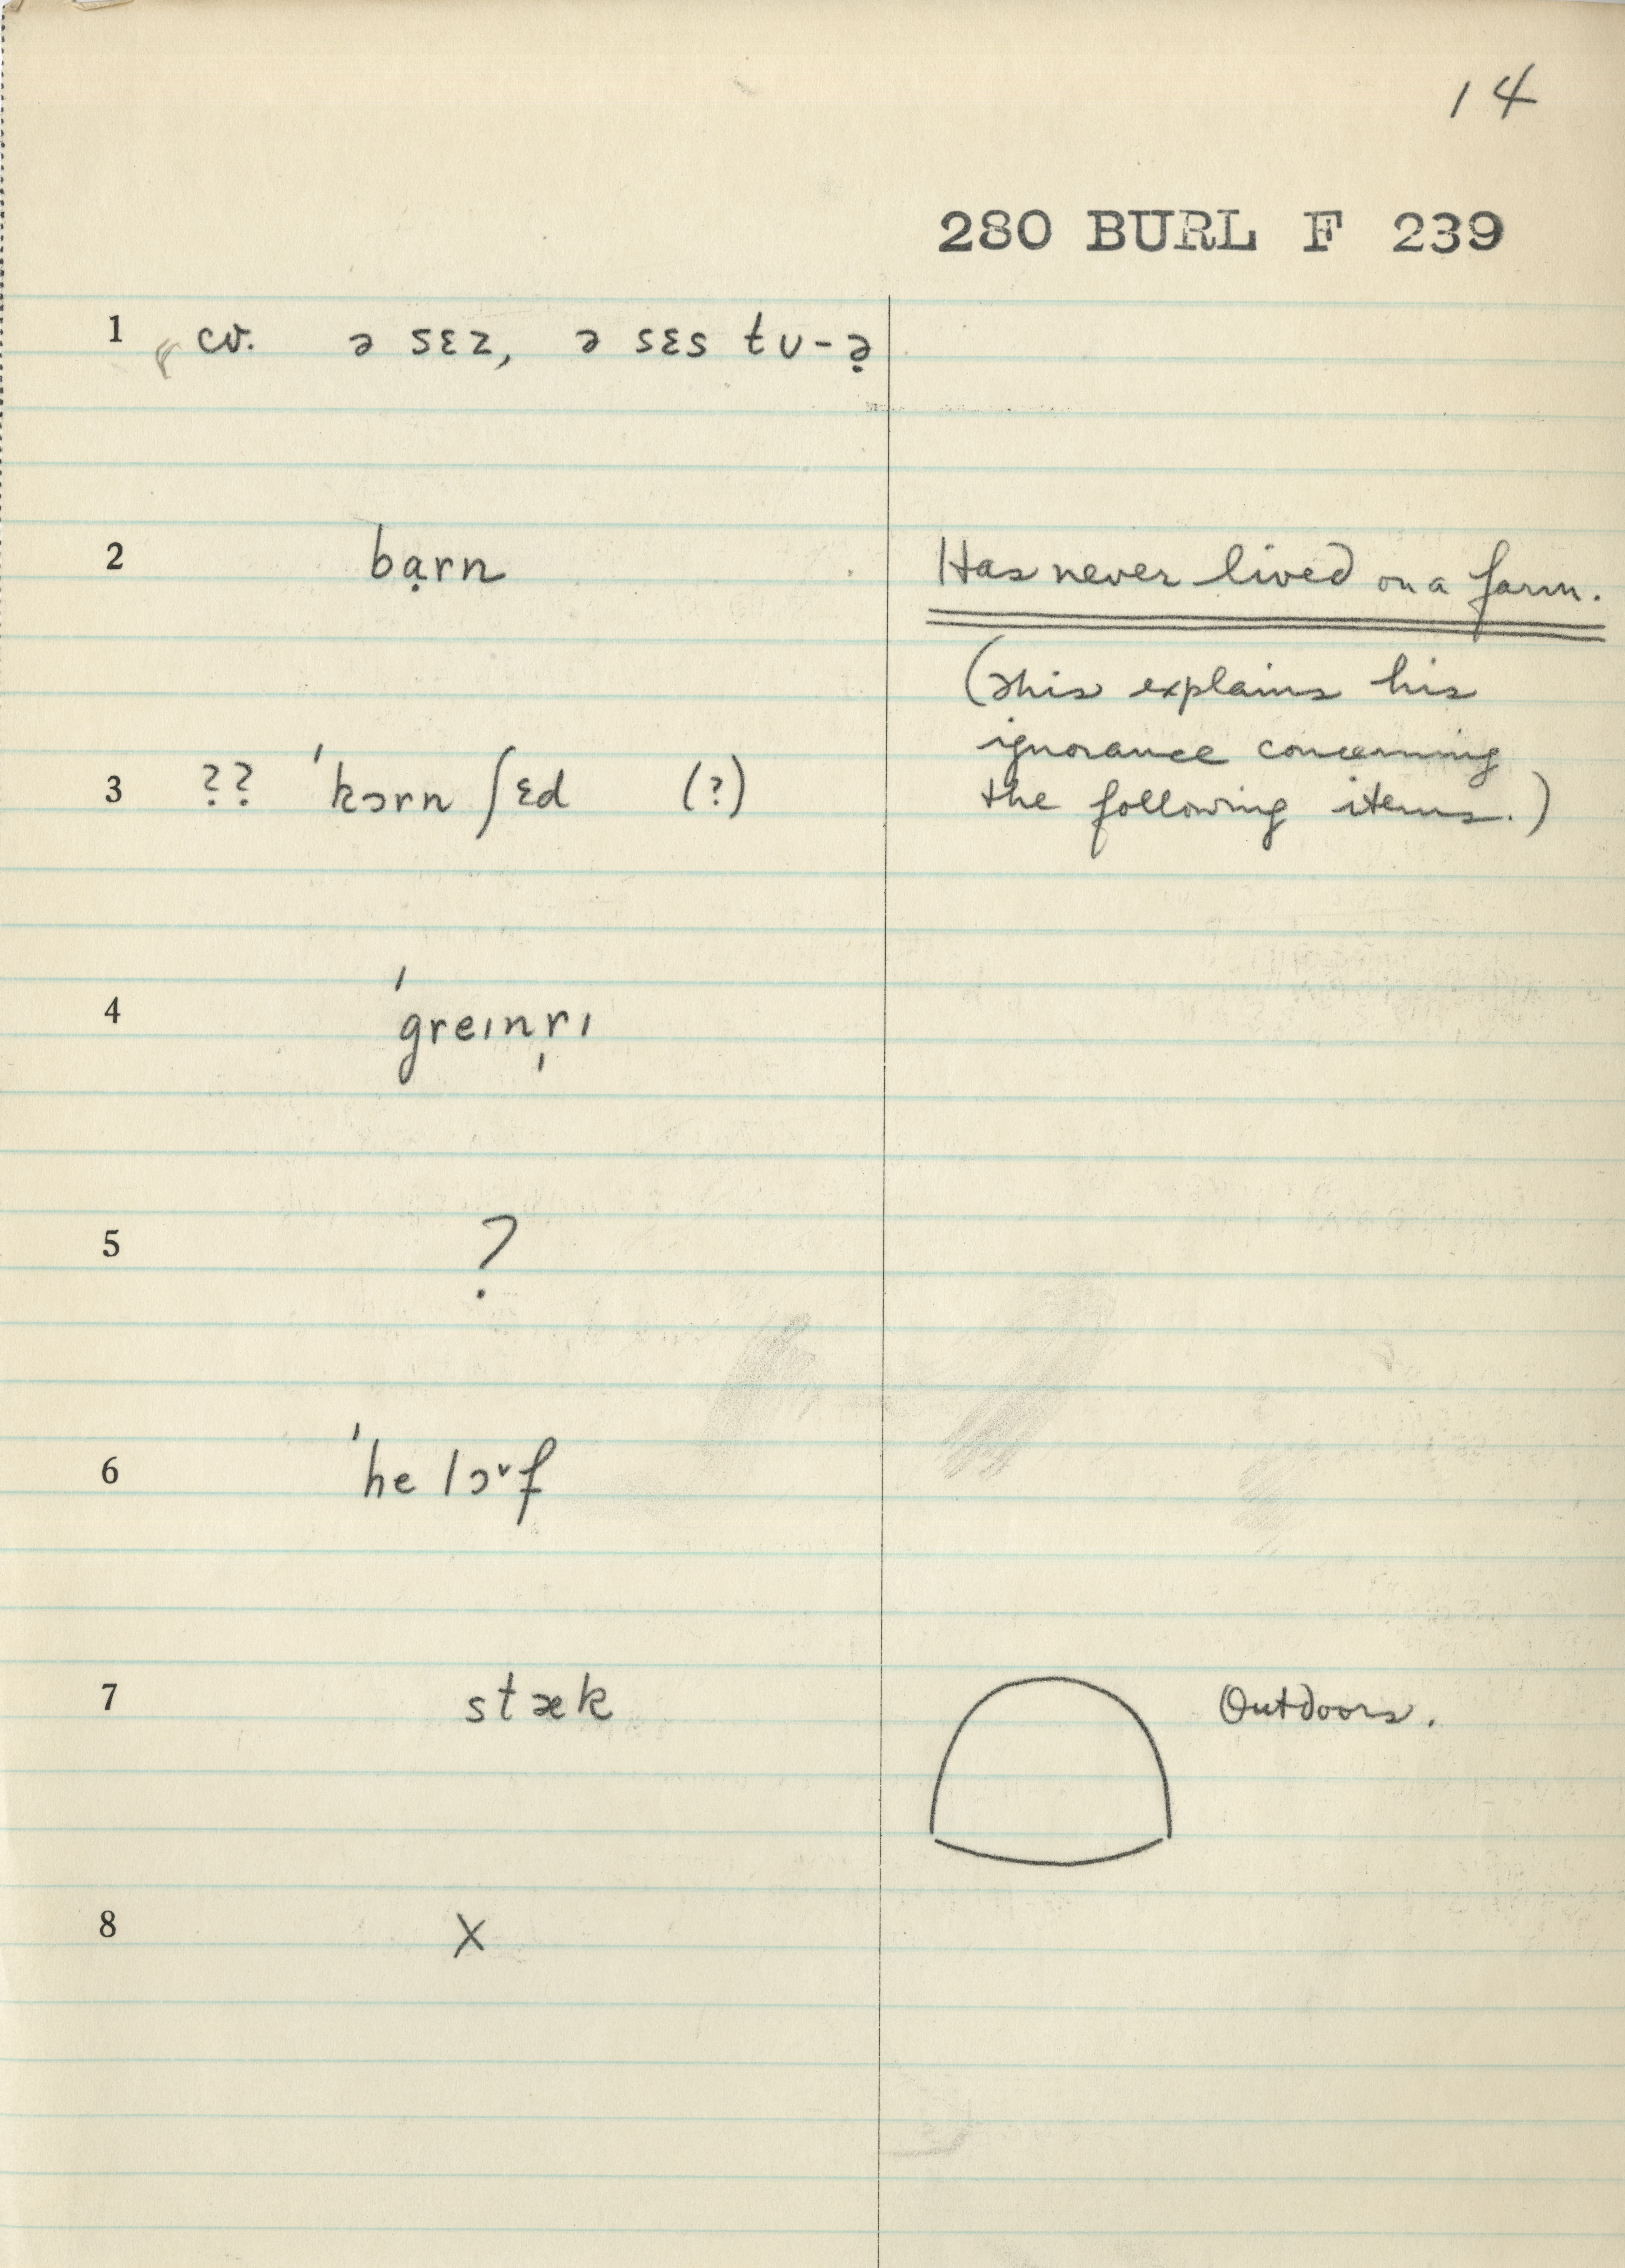 14
280 BURL F 239
1 cv. ə sɛz, ə sɛs tu-ə̣
2 bạrn Has never lived on a farm.
(This explains his
ignorance concerning
3 ?? ˈkɔrn ʃɛd (?) the following items.)
4 ˈgreɪnr̩ɪ
5 ?
6 ˈhe lɔ˅f
7 stæk Outdoors.
8 X